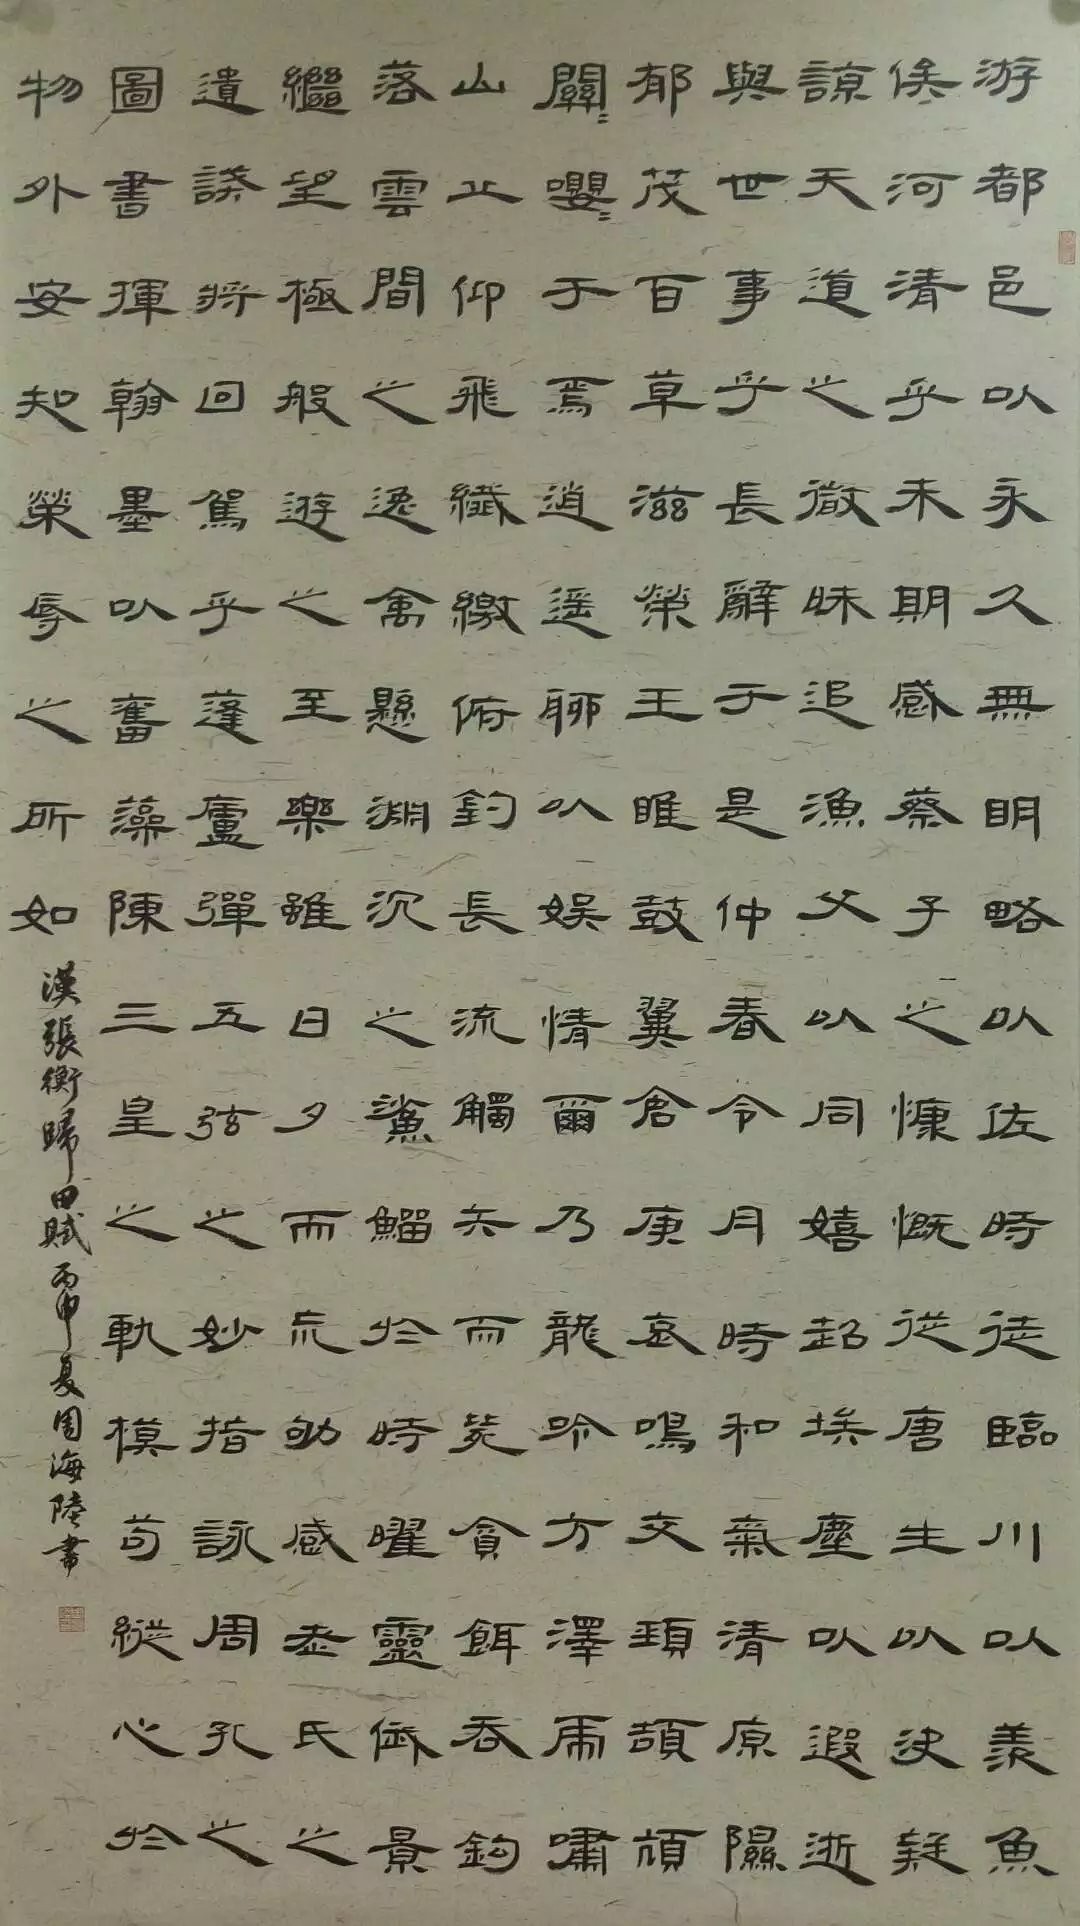 游都邑以永久無明略以佐時徒臨川以羨魚
俟河清乎未期感蔡子之慷慨從唐生以決疑
諒天道之微昧追漁父以同嬉超埃塵以遐逝
與世事乎長辭于是仲春令月時和氣清原隰
郁茂百草滋榮王雎鼓翼倉庚哀鳴交頸頡頏
關〻嚶〻于焉逍遙聊以娛情爾乃龍吟方澤虎嘯
山丘仰飛纖繳俯釣長流觸矢而斃貪餌吞鉤
落雲間之逸禽懸淵沉之鯊鰡於時曜靈俄景
繼望極般游之至樂雖日夕而忘劬感老氏之
遺誡將回駕乎蓬廬彈五弦之妙指詠周孔之
圖書揮翰墨以奮藻陳三皇之軌模苟縱心於
物外安知榮辱之所如
漢張衡歸田賦丙申夏周海陸書